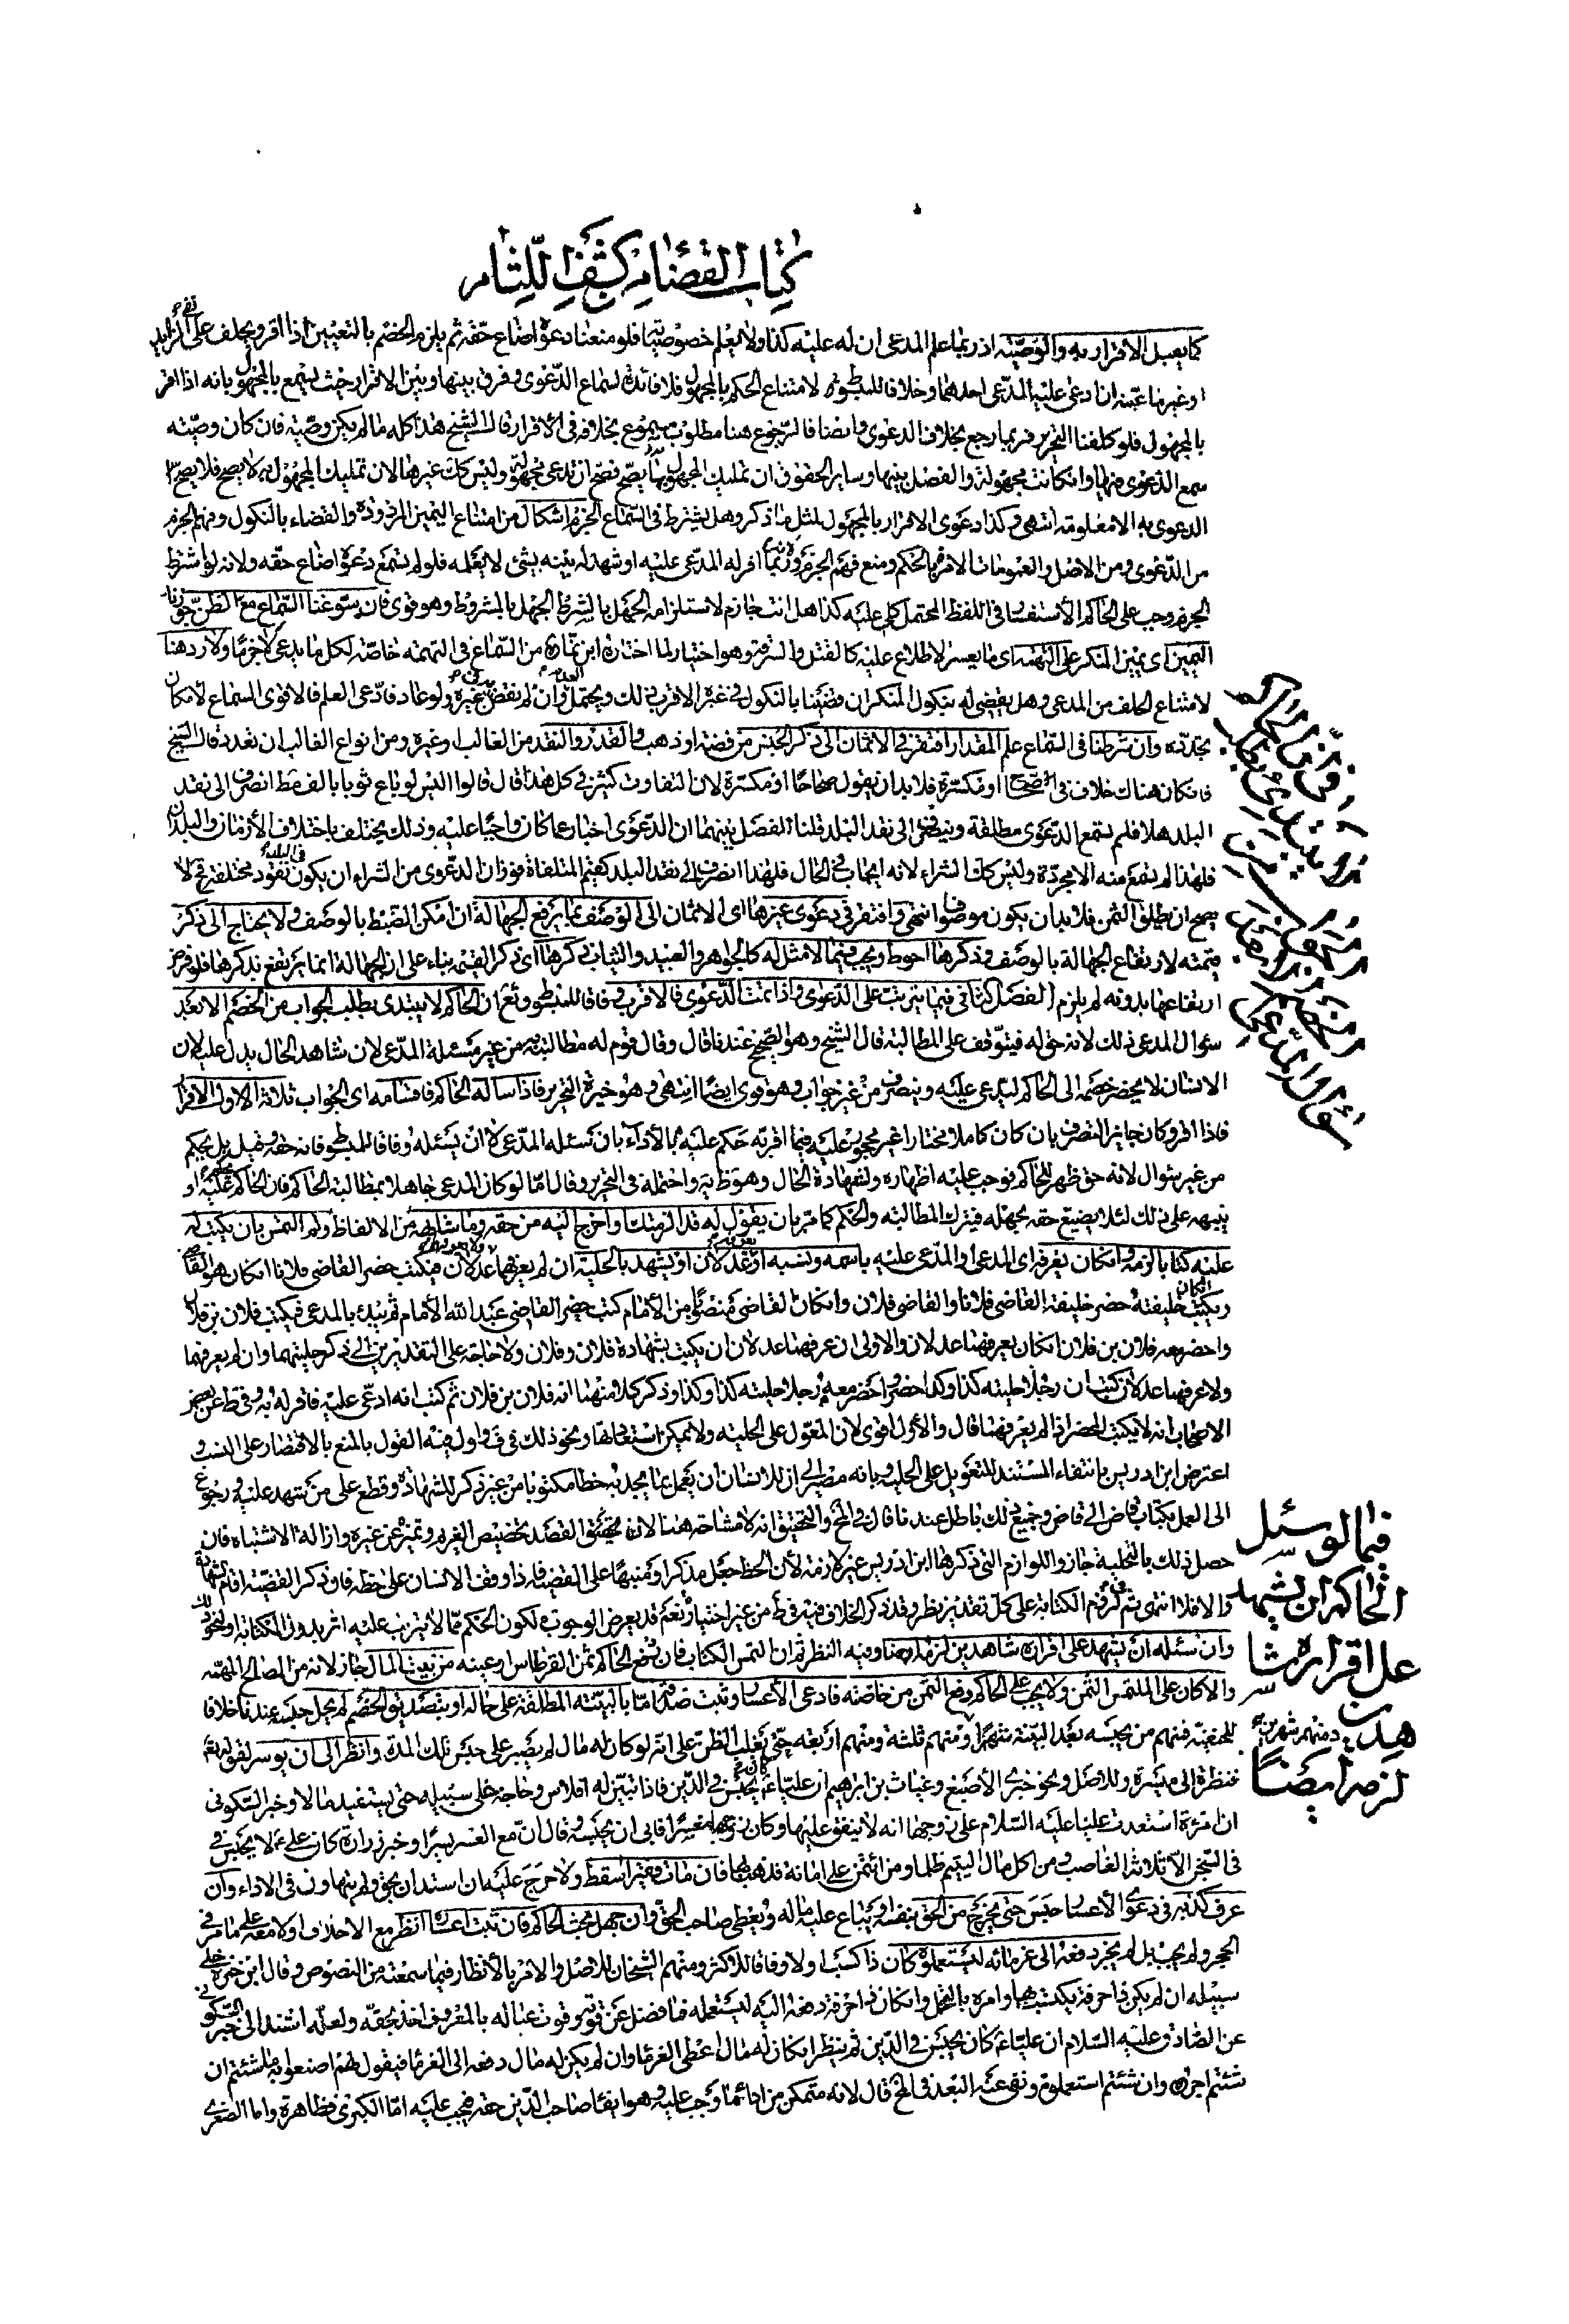 كتاب القضاء من كشف اللثام
كما يقبل الاقرار به والوصية اذ ربما علم المدعى ان له عليه كذا ولا يعلم خصوصيتها فلو منعنا دعوة اضاع حقه ثم يلزم الخصم بالتعيين اذا اقر ويحلف على نفى الزايد
او غير ما عينه ان ادعى عليه المدعى احدهما وخلافا للمبسوط وغيره لامتناع الحكم بالمجهول فلا فائدة لسماع الدعوى وفرق بينها وبين الاقرار حيث يسمع بالمجهول بانه اذا اقر
بالمجهول فلو كلفنا التحرير فربما رجع بخلاف الدعوى وايضا فالرجوع هنا مطلوب بخلافه فى الاقرار قال الشيخ هذا كله ما لم يكن وصية فان كان وصيته
سمع الدعوى فيها وان كانت مجهولة والفصل بينها وساير الحقوق ان تمليك المجهول بها يصح فصح ان تدعى مجهولة وليس كك غيرها لان تمليك المجهول به لا يصح فلا يصح
الدعوى به الا معلومة انتهى وكذا دعوى الاقرار بالمجهول لمثل ما ذكر وهل يشترط فى السماع الجزم اشكال من امتناع اليمين المردودة والقضاء بالنكول وفهم الجزم
من الدعوى ومن الاصل والعمومات الامر بالحكم ومنع فهم الجزم وربما اقر له المدعى عليه او شهد له بينه بشئ لا يعلمه فلو لم يسمع دعوة اضاع حقه ولانه لو اشترط
الجزم وجب على الحاكم الاستفسار فى اللفظ المحتمل كلى عليه كذا هل انت جازم لاستلزامه الجهل بالشرط الجهل بالمشروط وهو قوى فان سوغنا السماع مع الظن جوزنا
اليمين اى يمين المنكر على التهمة اى ما يعسر الاطلاع عليه كالقتل والسرقة وهو اختيار لما اختاره ابن نما من السماع فى التهمة خاصة لكل ما يدعى لا جزما ولا رد هنا
لامتناع الحلف من المدعى وهل يقضى له بنكول المنكر ان قضينا بالنكول فى غيره الاقرب ذلك ويحتمل العدم وان لم نقض بغيره ولو عاد فادعى العلم فالاقوى السماع لامكان
تجدده وان شرطنا فى السماع علم المقدار افتقر فى الاثمان الى ذكر الجنس من فضة او ذهب والقدر والنقد من الغالب او غيره ومن انواع الغالب ان تعدد قال الشيخ
فان كان هناك خلاف فى صحيح او مكسرة فلا بد ان يقول صحاحا او مكسرة لان التفاوت كثير فى كل هذا قال قالوا اليس لو باع ثوبا بالف مط انصرف الى نقد
البلد هلا قلتم يسمع الدعوى مطلقة وينصرف الى نقد البلد قلنا الفصل بينهما ان الدعوى اخبار عما كان واجبا عليه وذلك يختلف باختلاف الازمان والبلدان
فلهذا لم يسمع منه الا محررة وليس كك الشراء لانه ايجاب فى الحال فلهذا انصرف الى نقد البلد كقيم المتلفات فوزان الدعوى من الشراء ان يكون فى البلد نقود مختلفة فح لا
يصح ان يطلق الثمن فلا بد ان يكون موصوفا انتهى وافتقر فى دعوى غيرها اى الاثمان الى الوصف بما يرفع الجهالة ان امكن الضبط بالوصف ولا يحتاج الى ذكر
قيمته لارتفاع الجهالة بالوصف وذكرها احوط ويجب فيما لا مثل له كالجواهر والعبيد والثياب ذكرها اى ذكر القيمة بناء على ان الجهالة انما يرتفع بذكرها فلو فرض
ارتفاعها بدونه لم يلزم الفصل الثانى فيما يترتب على الدعوى واذا تمت الدعوى فالاقرب وفاقا للمبسوط وئع ان الحاكم لا يبتدى بطلب الجواب من الخصم الا بعد
سؤال المدعى ذلك لانه حق له فيتوقف على المطالبة قال الشيخ وهو الصحيح عندنا قال وقال قوم له مطالبته به من غير مسئلة المدعى لان شاهد الحال يدل عليه لان
الانسان لا يحضر خصمه الى الحاكم ليدعى عليه وينصرف من غير جواب وهو قوى ايضا انتهى وهو خيرة التحرير فاذا ساله الحاكم فاقسامه اى الجواب ثلاثة الاول الاقرار
فاذا اقر وكان جايز التصرف بان كان كاملا مختارا غير محجور عليه فيما اقر به حكم عليه بالاداء بان سئله المدعى لا ان يسئله وفاقا للمبسوط فانه حقه وقيل بل يحكم
من غير سؤال لانه حق ظهر للحاكم فوجب عليه اظهاره ولشهادة الحال وهو ظ ية واحتمله فى التحرير وقال اما لو كان المدعى جاهلا بمطالبة الحاكم فان الحاكم يحكم عليه او
ينبهه على ذلك لئلا يضيع حقه بجهله فيترك المطالبة والحكم كما مر بان يقول له قد الزمتك او اخرج اليه من حقه وما شابهه من الالفاظ ولو التمس بان يكتب له
عليه كتابا لزمه وان كان يعرفه اى المدعى والمدعى عليه باسمه ونسبه او عدلان او يشهد بالحلية ان لم يعرفهما عدلان فيكتب حضر القاضى فلانا ان كان هو القاضى
ويكتب خليفته حضر خليفة القاضى فلانا والقاضى فلان وان كان القاضى منصوبا من الامام كتب حضر القاضى عبد الله الامام ثم يبدء بالمدعى فيكتب فلان بن فلان
واحضر معه فلان بن فلان ان كان يعرفهما عدلان والاولى ان عرفهما عدلان ان يكتب بشهادة فلان وفلان ولا حاجة على التقديرين الى ذكر حليتهما وان لم يعرفهما
ولا عرفهما عدلان كتب ان رجلا حليته كذا وكذا احضر واحضر معه رجلا حليته كذا وكذا وذكر كل منهما انه فلان بن فلان ثم كتب انه ادعى عليه فاقر له به وفى ط عن بعض
الاصحاب انه لا يكتب المحضر اذا لم يعرفهما قال والاول اقوى لان المعول على الحلية ولا يمكن استعارتها ونحو ذلك فى ف واول فيه القول بالمنع بالاقتصار على النسب و
اعترض ابن ادريس بانتفاء المستند للتعويل على الحلية وبانه مصير الى ان للانسان ان يعمل بما يجد به خطا مكتوبا من غير ذكر للشهادة وقطع على من شهد عليه ورجوع
الى العمل بكتاب قاض الى قاض وجميع ذلك باطل عندنا قال فى المخ والتحقيق انه لا مشاحة هنا لان التحقيق القصد تخصيص الغريم وتميزه عن غيره وازالة الاشتباه فان
حصل ذلك بالتحلية جاز واللوازم التى ذكرها ابن ادريس غير لازمة لان الخط جعل مذكرا ومنبها على القضية فاذا وقف الانسان على خطه فان ذكر القضية اقام الشهادة
والا فلا انتهى ثم لزوم الكتابة على كل تقدير نظر وقد ذكر الخلاف فيه فى ط من غير اختيار نعم قد يعرض الوجوب لكون الحكم مما لا يترتب عليه اثر بدون الكتابة او لنحو ذلك
وان سئله ان يشهد على اقراره شاهدين لزمه ايضا وفيه النظر ثم ان التمس الكتاب فان دفع الحاكم ثمن القرطاس او عينه من بيت المال جاز لانه من المصالح المهمة
والا كان على الملتمس الثمن ولا يجب على الحاكم دفع الثمن من خاصته فادعى الاعسار وثبت صدقه اما بالبينة المطلعة على حاله او بتصديق الخصم لم يحل حبسه عندنا خلافا
للحنفية فمنهم من يحبسه بعد البينة شهرا ومنهم ثلثة ومنهم اربعة حتى يغلب الظن على انه لو كان له مال لم يصبر على حبس تلك المدة وانظر الى ان يوسر لقوله تع
فنظرة الى ميسرة وللاصل ونحو خبرى الاصبغ وغياث بن ابراهيم ان عليا ع كان يحبس فى الدين فاذا تبين له افلاس وحاجة خلى سبيله حتى يستفيد مالا وخبر السكونى
ان امرئة استعدت عليا عليه السلام على زوجها انه لا ينفق عليها وكان زوجها معسرا فابى ان يحبسه وقال ان مع العسر يسرا وخبر زرارة كان على ع لا يحبس فى
فى السجن الا ثلاثة الغاصب ومن اكل مال اليتيم ظلما ومن ائتمن على امانة فذهب بها فان مات فقيرا سقط ولا حرج عليه ان استدان بحق ولم يتهاون فى الاداء وان
عرف كذبه فى دعوى الاعسار حبس حتى يخرج من الحق بنفسه او يباع عليه ماله ويعطى صاحب الحق وان جهل بحث الحاكم فان ثبت اعساره انظر مع الاحلاف او لا معه على ما مر فى
الحجر ولم يجب بل لم يجز دفعه الى غرمائه ليستعملوه كان ذا كسب او لا وفاقا للاكثر ومنهم الشيخان للاصل والامر بالانظار فيما سمعته من النصوص وقال ابن حمزة خلى
سبيله ان لم يكن ذا حرفة يكتسب بها وامره بالتمحل وان كان ذا حرفة دفعه اليه ليستعمله فما فضل عن قوته وقوت عياله بالمعروف اخذ بحقه ولعله استند الى خبر السكونى
عن الصادق عليه السلام ان عليا ع كان يحبس فى الدين ثم ينظر ان كان له مال اعطى الغرما وان لم يكن له مال دفعه الى الغرما فيقول لهم اصنعوا به ما شئتم ان
شئتم اجروه وان شئتم استعملوه ونفى عنه البعد فى المخ قال لانه متمكن من اداء ما وجب عليه وهو ايفا صاحب الدين حقه فيجب عليه اما الكبرى فظاهرة واما الصغرى
فيما لو سئل
الحاكم ان يشهد
على اقراره شا
هدين
لزمه ايضا